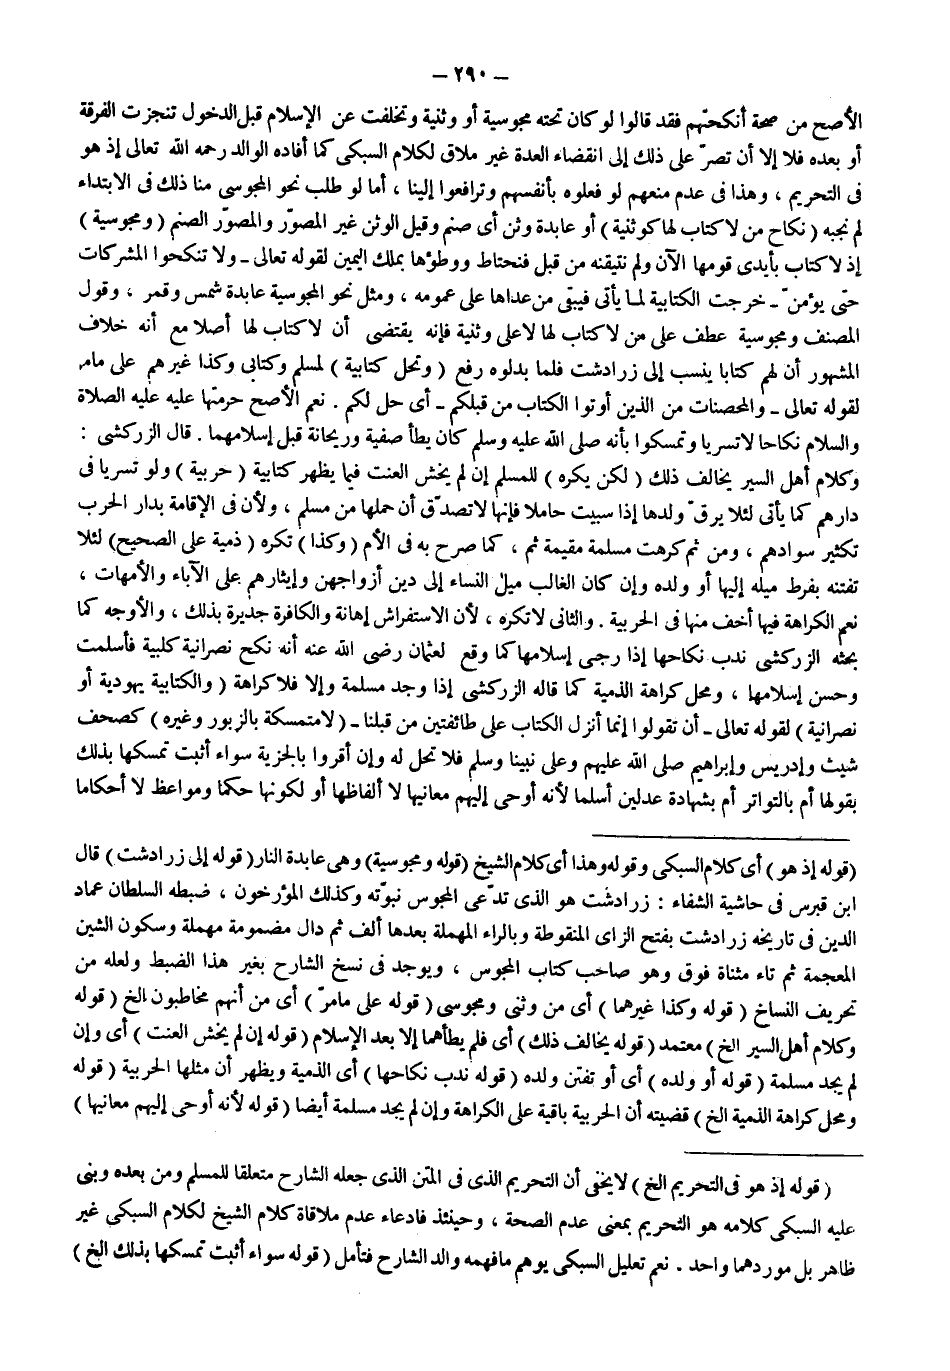 - ٢٩٠ -
الأصح من صحة أنكحتهم فقد قالوا لو كان تحته مجوسية أو وثنية وتخلفت عن الإسلام قبل الدخول تنجزت الفرقة
أو بعده فلا إلا أن تصرّ على ذلك إلى انقضاء العدة غير ملاق لكلام السبكى كما أفاده الوالد رحمه الله تعالى إذ هو
فى التحريم ، وهذا فى عدم منعهم لو فعلوه بأنفسهم وترافعوا إلينا ، أما لو طلب نحو المجوسى منا ذلك فى الابتداء
لم نجبه ( نكاح من لا كتاب لها كوثنية ) أو عابدة وثن أى صنم وقيل الوثن غير المصوّر والمصوّر الصنم ( ومجوسية )
إذ لا كتاب بأيدى قومها الآن ولم نتيقنه من قبل فنحتاط ووطؤها بملك اليمين لقوله تعالى ـ ولا تنكحوا المشركات
حتى يؤمنّ ـ خرجت الكتابية لما يأتى فيبقى من عداها على عمومه ، ومثل نحو المجوسية عابدة شمس وقمر ، وقول
المصنف ومجوسية عطف على من لا كتاب لها لا على وثنية فإنه يقتضى أن لا كتاب لها أصلا مع أنه خلاف
المشهور أن لهم كتابا ينسب إلى زرادشت فلما بدلوه رفع ( وتحل كتابية ) لمسلم وكتابى وكذا غيرهم على مامر
لقوله تعالى ـ والمحصنات من الذين أوتوا الكتاب من قبلكم ـ أى حل لكم . نعم الأصح حرمتها عليه عليه الصلاة
والسلام نكاحا لا تسريا وتمسكوا بأنه صلى الله عليه وسلم كان يطأ صفية وريحانة قبل إسلامهما . قال الزركشى :
وكلام أهل السير يخالف ذلك ( لكن يكره ) للمسلم إن لم يخش العنت فيما يظهر كتابية ( حربية ) ولو تسريا فى
دارهم كما يأتى لئلا يرقّ ولدها إذا سبيت حاملا فإنها لا تصدّق أن حملها من مسلم ، ولأن فى الإقامة بدار الحرب
تكثير سوادهم ، ومن ثم كرهت مسلمة مقيمة ثم ، كما صرح به فى الأم ( وكذا ) تكره ( ذمية على الصحيح ) لئلا
تفتنه بفرط ميله إليها أو ولده وإن كان الغالب ميل النساء إلى دين أزواجهن وإيثارهم على الآباء والأمهات ،
نعم الكراهة فيها أخف منها فى الحربية . والثانى لا تكره ، لأن الاستفراش إهانة والكافرة جديرة بذلك ، والأوجه كما
بحثه الزركشى ندب نكاحها إذا رجى إسلامها كما وقع لعثمان رضى الله عنه أنه نكح نصرانية كلبية فأسلمت
وحسن إسلامها ، ومحل كراهة الذمية كما قاله الزركشى إذا وجد مسلمة وإلا فلا كراهة ( والكتابية يهودية أو
نصرانية ) لقوله تعالى ـ أن تقولوا إنما أنزل الكتاب على طائفتين من قبلنا ـ ( لا متمسكة بالزبور وغيره ) كصحف
شيث وإدريس وإبراهيم صلى الله عليهم وعلى نبينا وسلم فلا تحل له وإن أقروا بالجزية سواء أثبت تمسكها بذلك
بقولها أم بالتواتر أم بشهادة عدلين أسلما لأنه أوحى إليهم معانيها لا ألفاظها أو لكونها حكما ومواعظ لا أحكاما
( قوله إذ هو ) أى كلام السبكى وقوله وهذا أى كلام الشيخ ( قوله ومجوسية ) وهى عابدة النار ( قوله إلى زرادشت ) قال
ابن قبرس فى حاشية الشفاء : زرادشت هو الذى تدّعى المجوس نبوّته وكذلك المؤرخون ، ضبطه السلطان عماد
الدين فى تاريخه زرادشت بفتح الزاى المنقوطة وبالراء المهملة بعدها ألف ثم دال مضمومة مهملة وسكون الشين
المعجمة ثم تاء مثناة فوق وهو صاحب كتاب المجوس ، ويوجد فى نسخ الشارح بغير هذا الضبط ولعله من
تحريف النساخ ( قوله وكذا غيرهما ) أى من وثنى ومجوسى ( قوله على مامرّ ) أى من أنهم مخاطبون الخ ( قوله
وكلام أهل السير الخ ) معتمد ( قوله يخالف ذلك ) أى فلم يطأهما إلا بعد الإسلام ( قوله إن لم يخش العنت ) أى وإن
لم يجد مسلمة ( قوله أو ولده ) أى أو تفتن ولده ( قوله ندب نكاحها ) أى الذمية ويظهر أن مثلها الحربية ( قوله
ومحل كراهة الذمية الخ ) قضيته أن الحربية باقية على الكراهة وإن لم يجد مسلمة أيضا ( قوله لأنه أوحى إليهم معانيها )
( قوله إذ هو فى التحريم الخ ) لايخفى أن التحريم الذى فى المتن الذى جعله الشارح متعلقا للمسلم ومن بعده وبنى
عليه السبكى كلامه هو التحريم بمعنى عدم الصحة ، وحينئذ فادعاء عدم ملاقاة كلام الشيخ لكلام السبكى غير
ظاهر بل موردهما واحد . نعم تعليل السبكى يوهم مافهمه والد الشارح فتأمل ( قوله سواء أثبت تمسكها بذلك الخ )